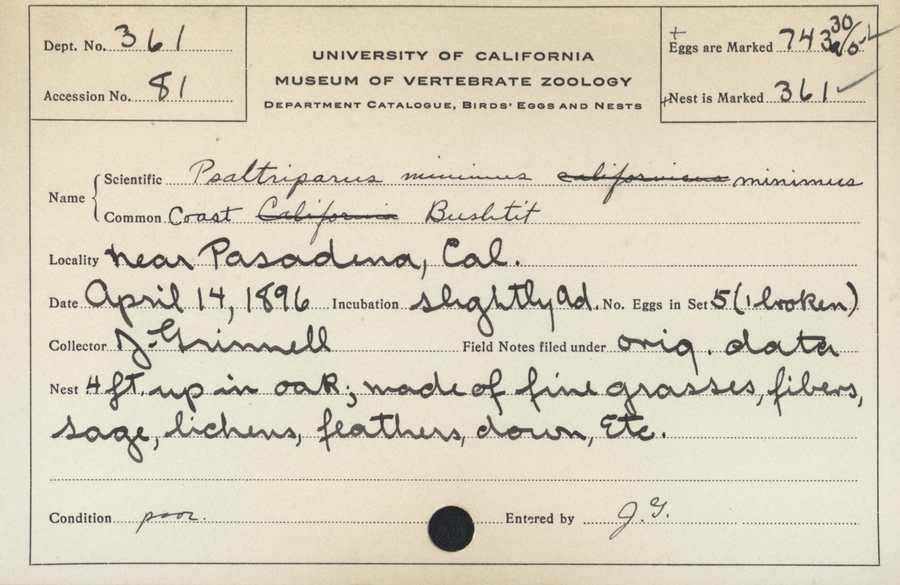 Dept. No. 361
Accession No. 81
UNIVERSITY OF CALIFORNIA
MUSEUM OF VERTEBRATE ZOOLOGY
DEPARTMENT CATALOGUE, BIRDS' EGGS AND NESTS
+
Eggs are Marked 743
30
+Nest is Marked 361 ✓
Name
Scientific Psaltriparus minimus californicus minimus
Common Coast California Bushtit
Locality near Pasadena, Cal.
Date April 14, 1896 Incubation slightly ad. No. Eggs in Set 5 (1 broken)
Collector J. Grinnell Field Notes filed under orig. data
Nest 4 ft. up in oak; made of fine grasses, fibers,
sage, lichens, feathers, down, Etc.
Condition poor. Entered by J.G.